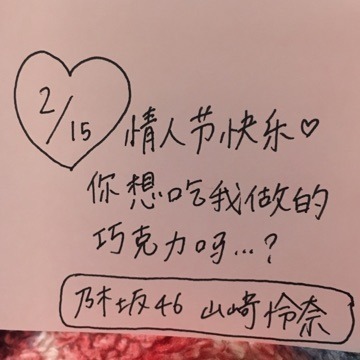 2/15
情人节快乐♡
你想吃我做的
巧克力吗...?
乃木坂46 山崎怜奈